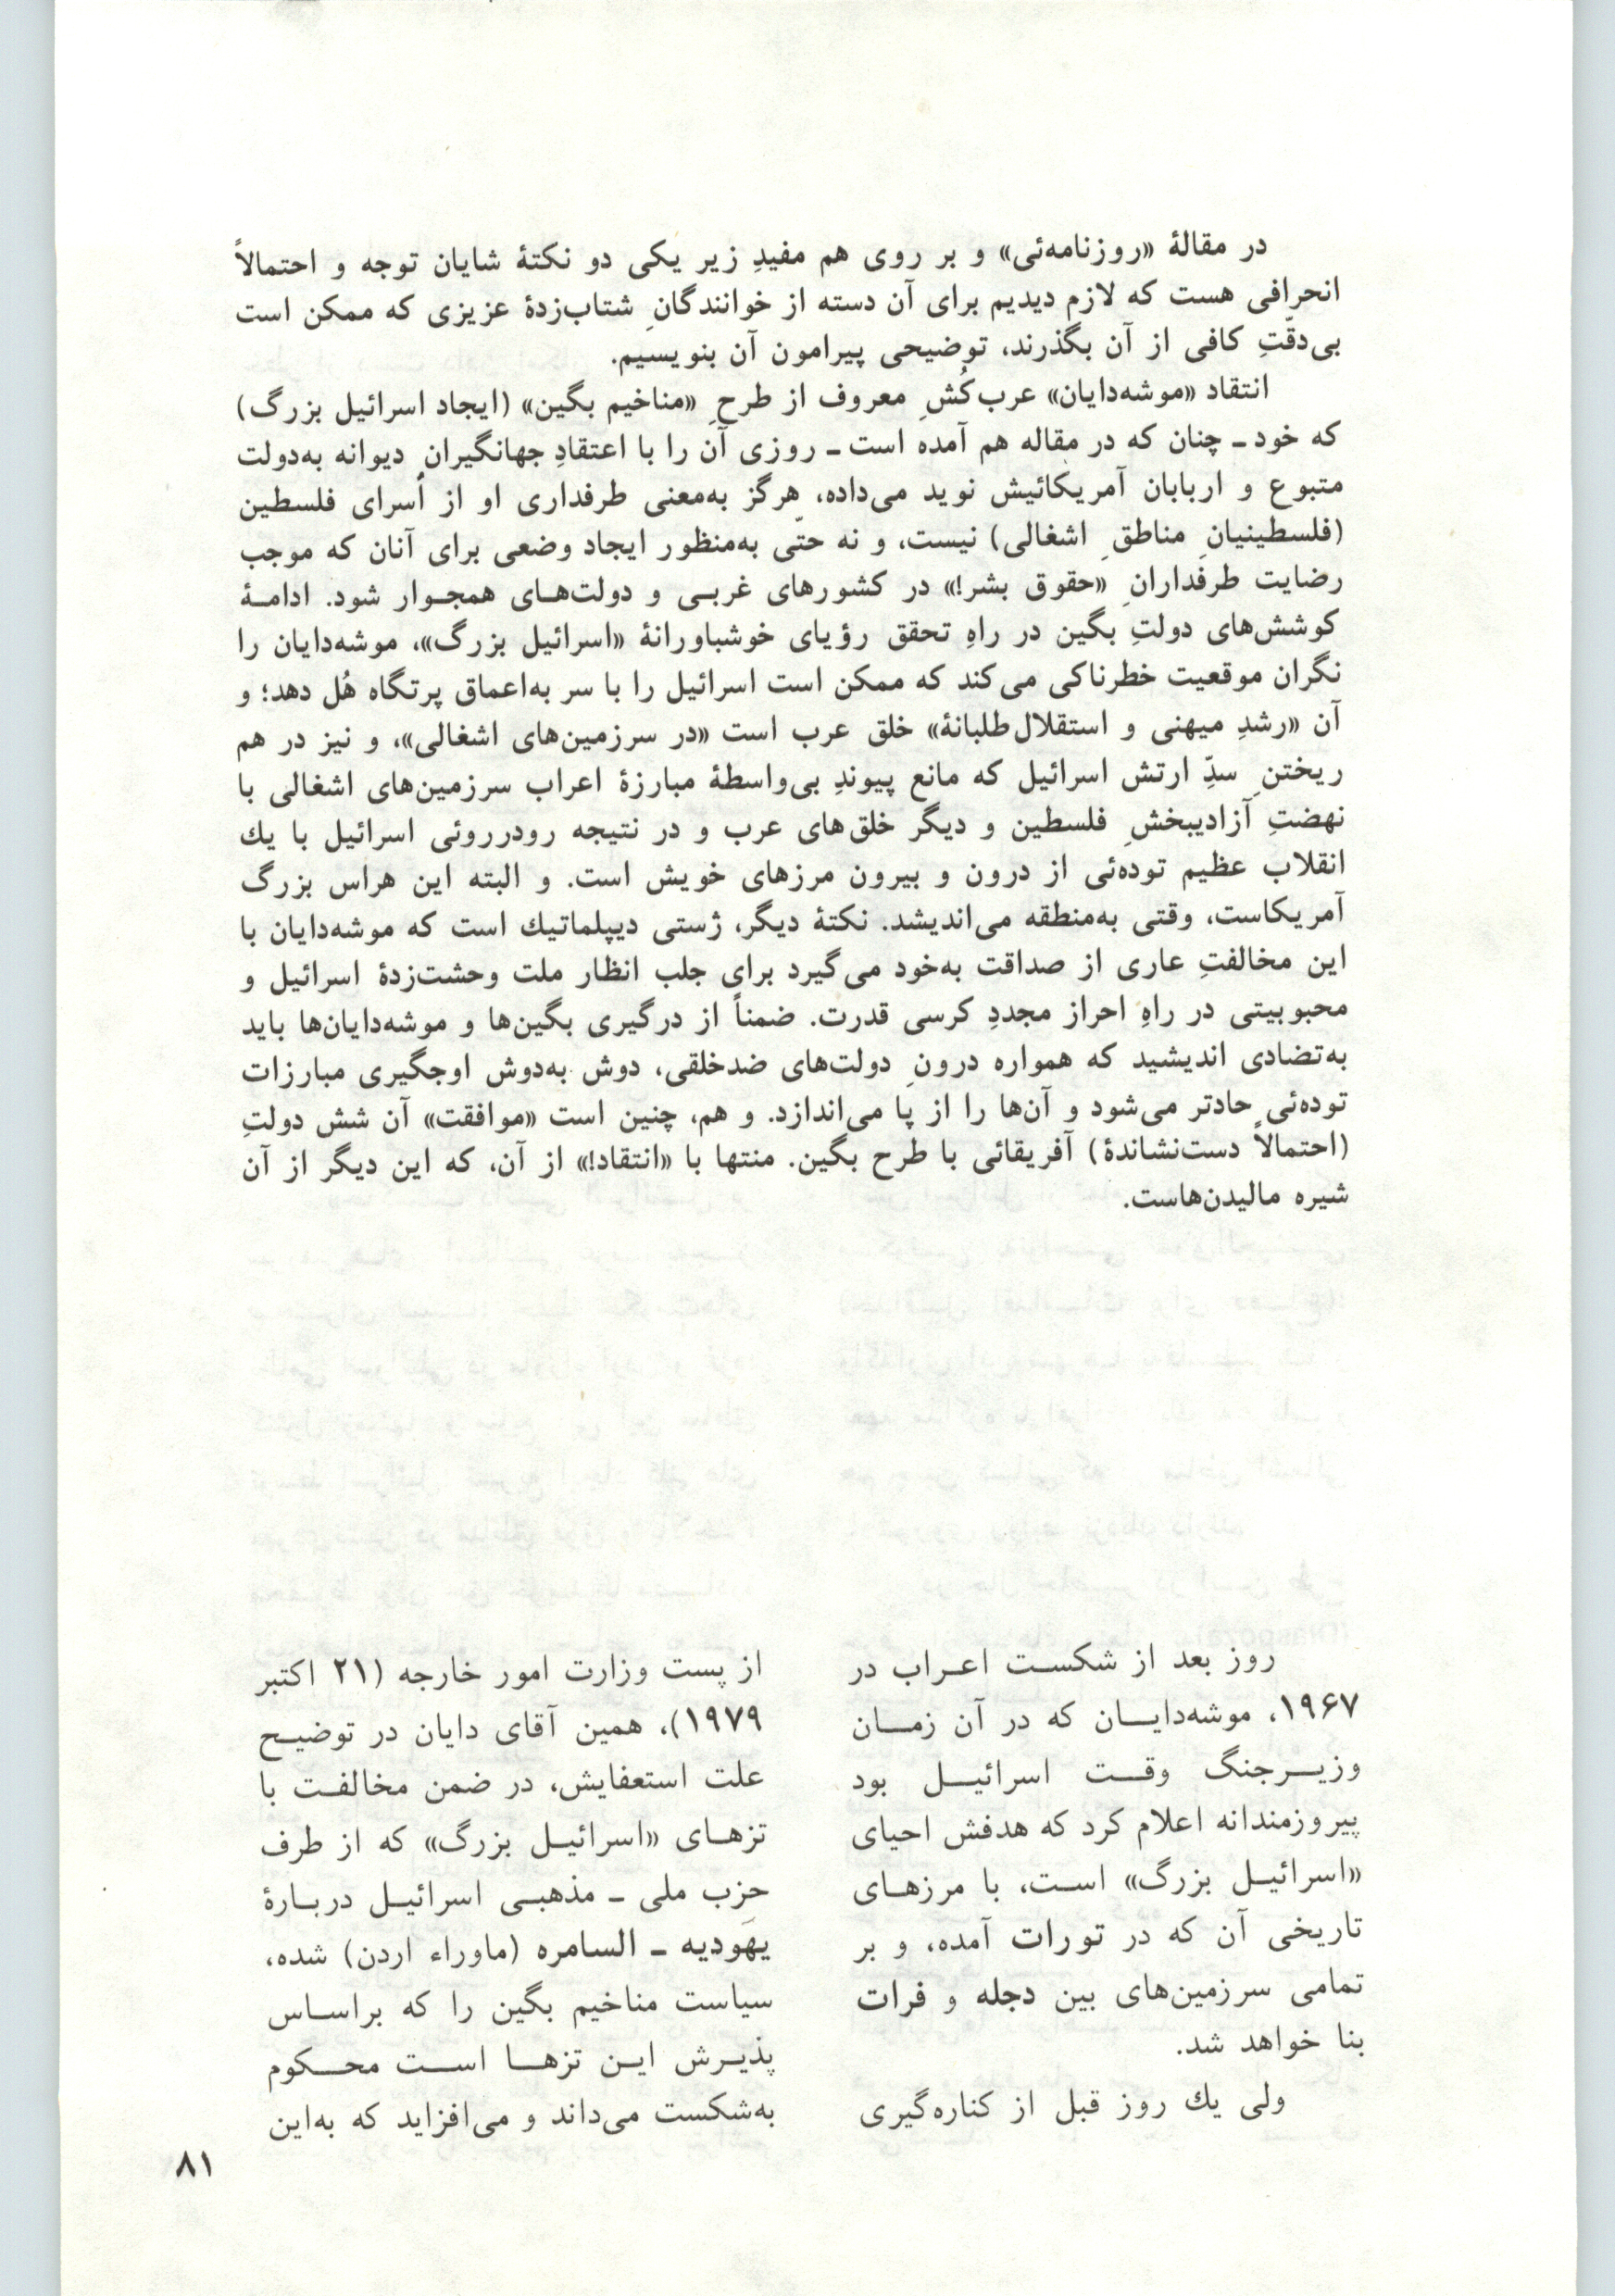 در مقالهٔ «روزنامه‌ئی» و بر روی هم مفیدِ زیر یکی دو نکتهٔ شایان توجه و احتمالاً
انحرافی هست که لازم دیدیم برای آن دسته از خوانندگانِ شتاب‌زدهٔ عزیزی که ممکن است
بی‌دقّتِ کافی از آن بگذرند، توضیحی پیرامون آن بنویسیم.
انتقاد «موشه‌دایان» عرب‌کُشِ معروف از طرحِ «مناخیم بگین» (ایجاد اسرائیل بزرگ)
که خود ـ چنان که در مقاله هم آمده است ـ روزی آن را با اعتقادِ جهانگیرانِ دیوانه به‌دولت
متبوع و اربابان آمریکائیش نوید می‌داده، هرگز به‌معنی طرفداری او از اُسرای فلسطین
(فلسطینیانِ مناطقِ اشغالی) نیست، و نه حتّی به‌منظور ایجاد وضعی برای آنان که موجب
رضایت طرفدارانِ «حقوق بشر!» در کشورهای غربی و دولت‌های همجوار شود. ادامهٔ
کوشش‌های دولتِ بگین در راهِ تحقق رؤیای خوشباورانهٔ «اسرائیل بزرگ»، موشه‌دایان را
نگران موقعیت خطرناکی می‌کند که ممکن است اسرائیل را با سر به‌اعماق پرتگاه هُل دهد؛ و
آن «رشدِ میهنی و استقلال‌طلبانهٔ» خلق عرب است «در سرزمین‌های اشغالی»، و نیز در هم
ریختنِ سدِّ ارتش اسرائیل که مانع پیوندِ بی‌واسطهٔ مبارزهٔ اعراب سرزمین‌های اشغالی با
نهضتِ آزادیبخشِ فلسطین و دیگر خلق‌های عرب و در نتیجه رودرروئی اسرائیل با یك
انقلاب عظیم توده‌ئی از درون و بیرون مرزهای خویش است. و البته این هراس بزرگ
آمریکاست، وقتی به‌منطقه می‌اندیشد. نکتهٔ دیگر، ژستی دیپلماتیك است که موشه‌دایان با
این مخالفتِ عاری از صداقت به‌خود می‌گیرد برای جلب انظار ملت وحشت‌زدهٔ اسرائیل و
محبوبیتی در راهِ احراز مجددِ کرسی قدرت. ضمناً از درگیری بگین‌ها و موشه‌دایان‌ها باید
به‌تضادی اندیشید که همواره درونِ دولت‌های ضدخلقی، دوش به‌دوش اوجگیری مبارزات
توده‌ئی حادتر می‌شود و آن‌ها را از پا می‌اندازد. و هم، چنین است «موافقت» آن شش دولتِ
(احتمالاً دست‌نشاندهٔ) آفریقائی با طرح بگین. منتها با «انتقاد!» از آن، که این دیگر از آن
شیره مالیدن‌هاست.
روز بعد از شکست اعراب در
۱۹۶۷، موشه‌دایان که در آن زمان
وزیرجنگ وقت اسرائیل بود
پیروزمندانه اعلام کرد که هدفش احیای
«اسرائیل بزرگ» است، با مرزهای
تاریخی آن که در تورات آمده، و بر
تمامی سرزمین‌های بین دجله و فرات
بنا خواهد شد.
ولی یك روز قبل از کناره‌گیری
از پست وزارت امور خارجه (۲۱ اکتبر
۱۹۷۹)، همین آقای دایان در توضیح
علت استعفایش، در ضمن مخالفت با
تزهای «اسرائیل بزرگ» که از طرف
حزب ملی ـ مذهبی اسرائیل دربارهٔ
یهَودیه ـ السامره (ماوراء اردن) شده،
سیاست مناخیم بگین را که براساس
پذیرش این تزها است محکوم
به‌شکست می‌داند و می‌افزاید که به‌این
۸۱